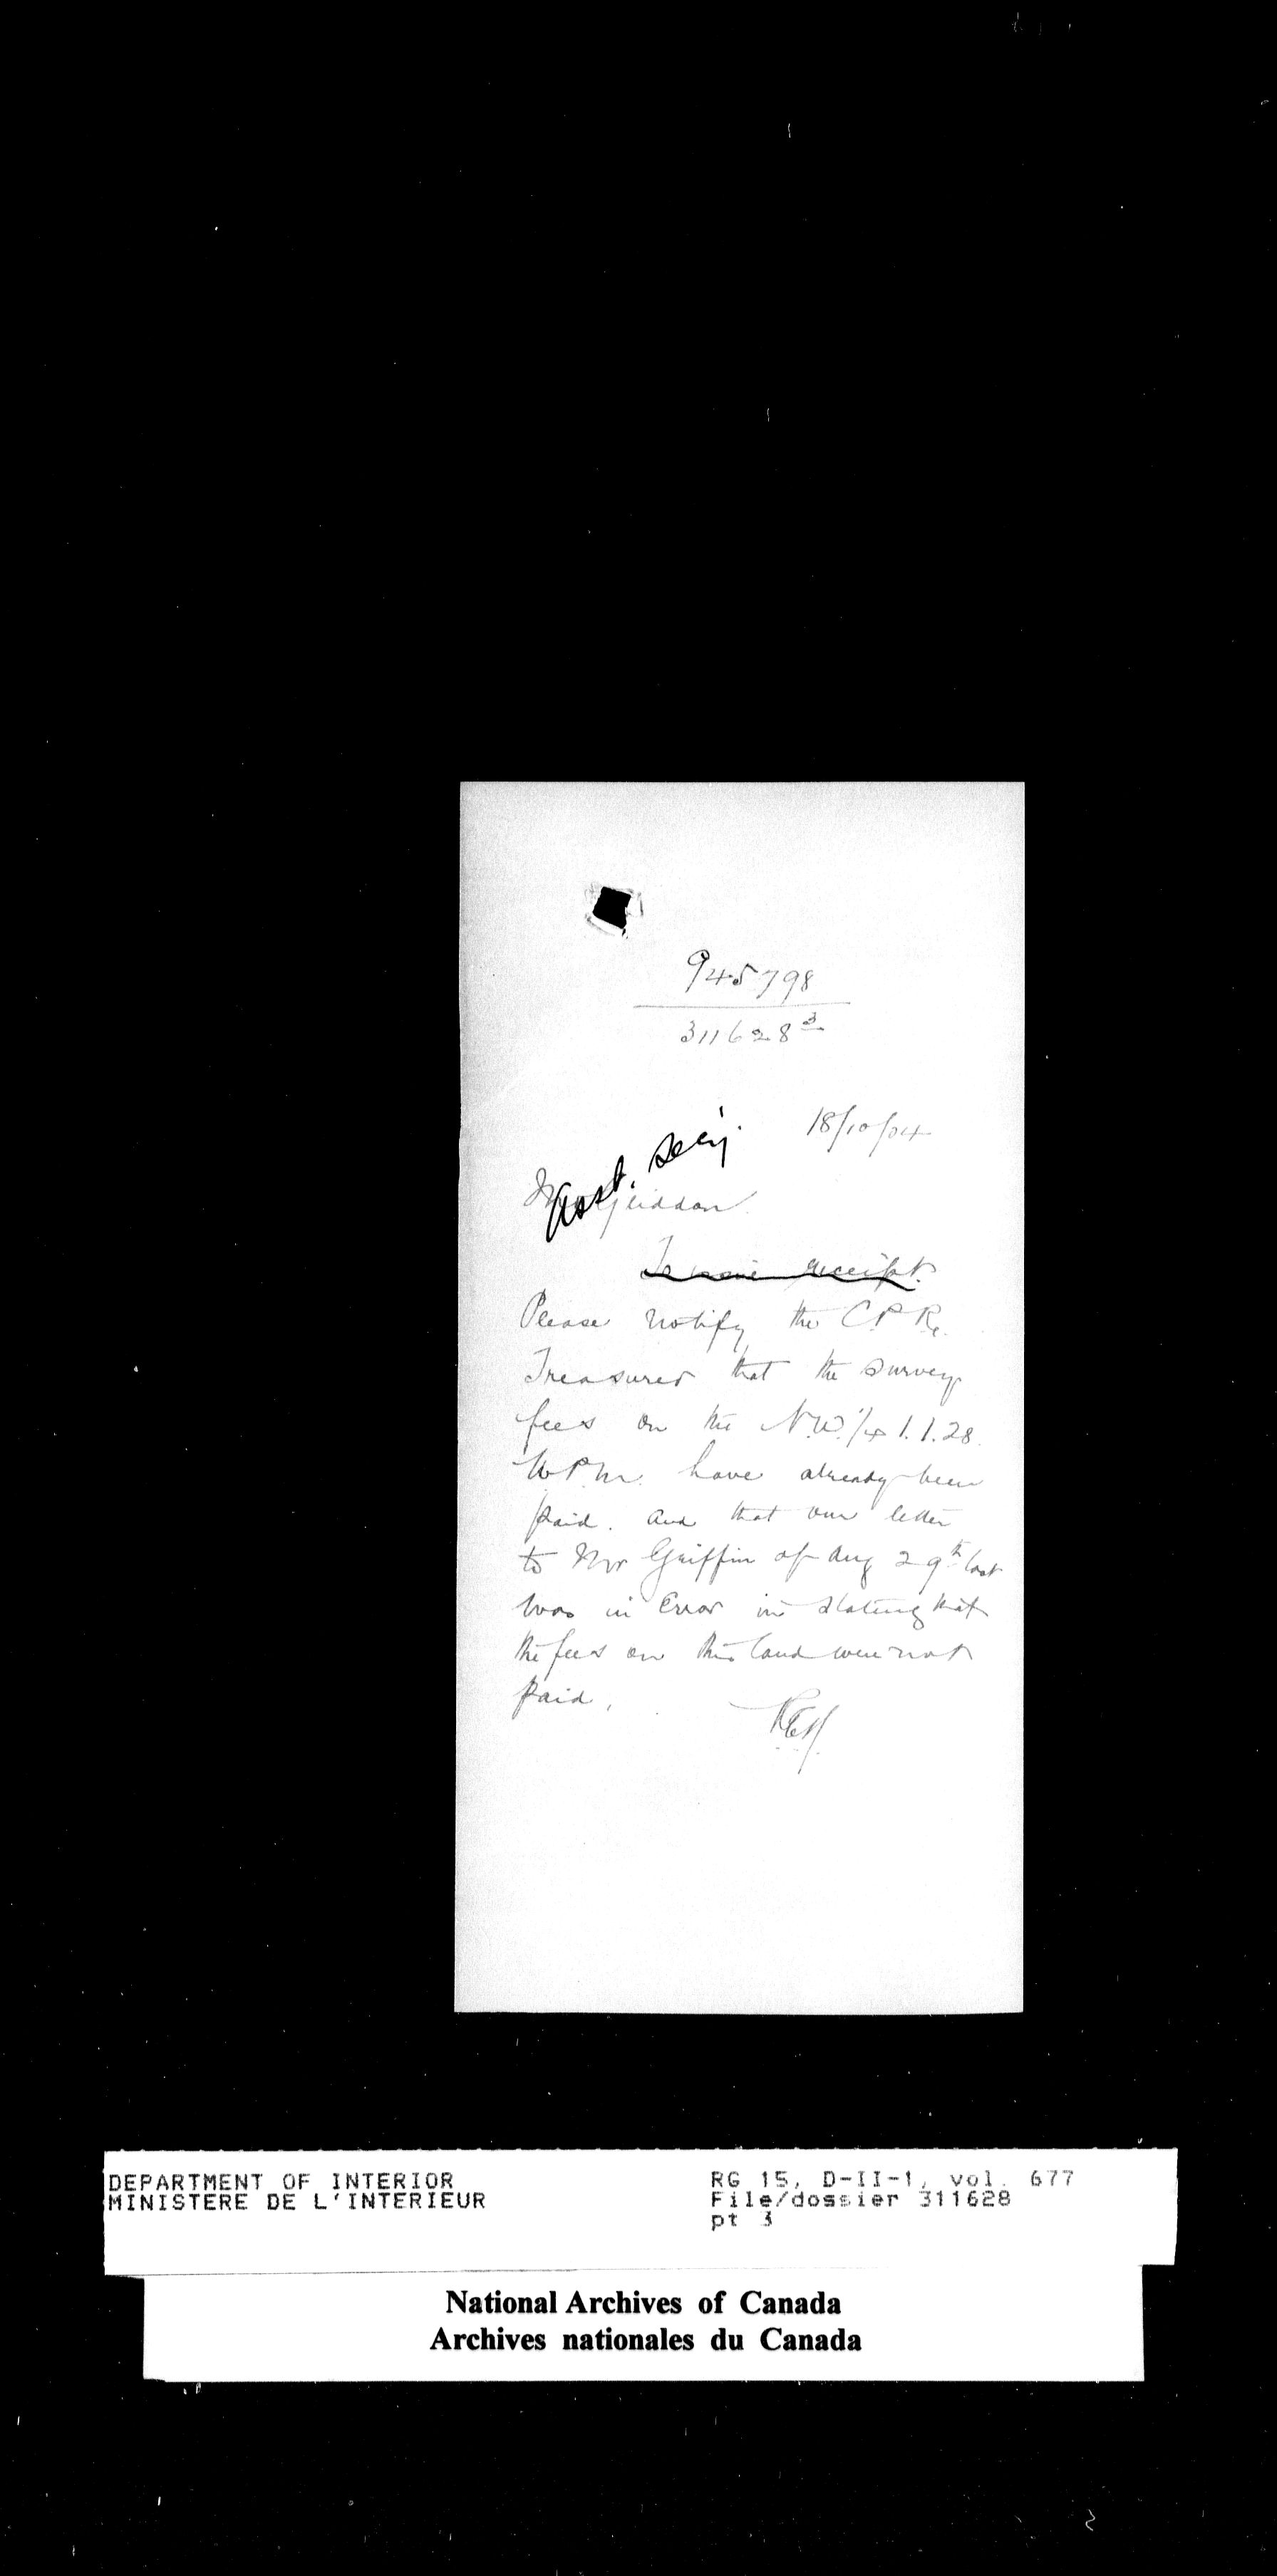 945798
311628 3
18/10/04
Asst. Secy.
Mr Gliddon
receipt.
Please notify the C.P.R.
Treasurer that the survey
fees on the N.W. 1/4 1.1.28
W.P.M. have already been
paid. and that our letter
to Mr Griffin of Aug 29th last
was in Error in stating that
the fees on this land were not
paid.
DEPARTMENT OF INTERIOR
MINISTERE DE L'INTERIEUR
RG 15, D-II-1, vol. 677
File/dossier 311628
pt 3
National Archives of Canada
Archives nationales du Canada